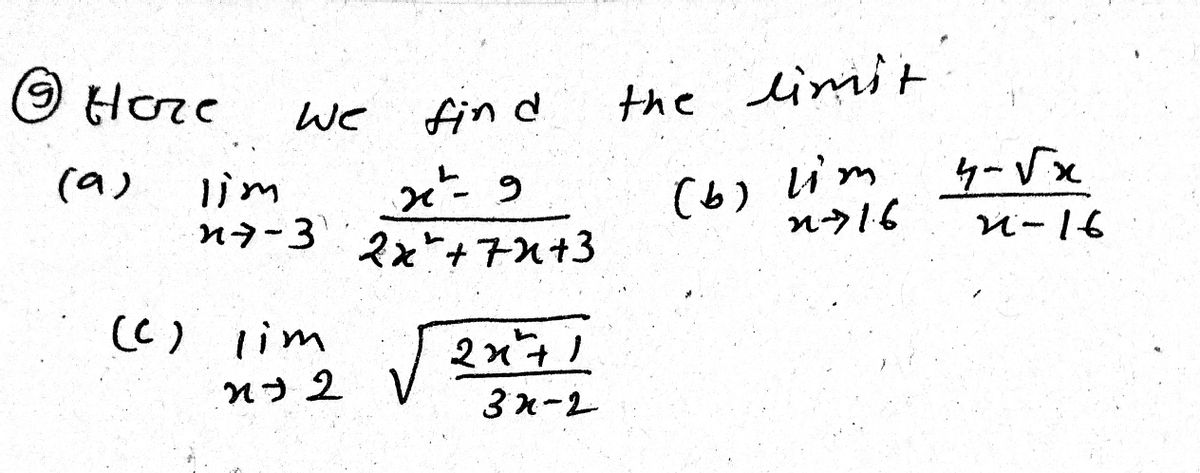 ⑨ Here we find the limit
(a) lim x→-3 (x²-9)/(2x²+7x+3) (b) lim x→16 (4-√x)/(x-16)
(c) lim x→2 √((2x²+1)/(3x-2))